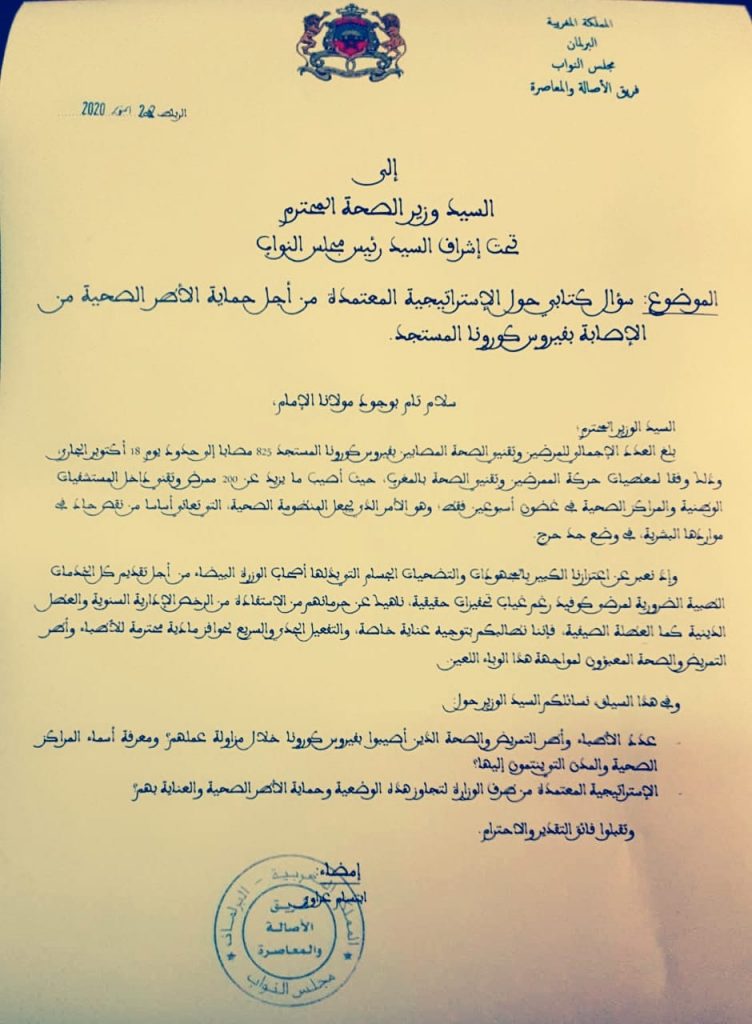 المملكة المغربية
البرلمان
مجلس النواب
فريق الأصالة والمعاصرة
الرباط 2020
إلى
السيد وزير الصحة المحترم
تحت إشراف السيد رئيس مجلس النواب
الموضوع: سؤال كتابي حول الإستراتيجية المعتمدة من أجل حماية الأطر الصحية من
الإصابة بفيروس كورونا المستجد.
سلام تام بوجود مولانا الإمام،
السيد الوزير المحترم؛
بلغ العدد الإجمالي للممرضين وتقنيي الصحة المصابين بفيروس كورونا المستجد 825 مصابا إلى حدود يوم 18 أكتوبر الجاري،
وذلك وفقا لمعطيات حركة الممرضين وتقنيي الصحة بالمغرب، حيث أصيب ما يزيد عن 200 ممرض وتقني داخل المستشفيات
الوطنية والمراكز الصحية في غضون أسبوعين فقط؛ وهو الأمر الذي يجعل المنظومة الصحية، التي تعاني أساسا من نقص حاد في
مواردها البشرية، في وضع جد حرج.
وإذ نعبر عن اعتزازنا الكبير بالمجهودات والتضحيات الجسام التي يبذلها أصحاب الوزرة البيضاء من أجل تقديم كل الخدمات
الطبية الضرورية لمرضى كوفيد رغم غياب تحفيزات حقيقية، ناهيك عن حرمانهم من الإستفادة من الرخص الإدارية السنوية والعطل
الدينية كما العطلة الصيفية، فإننا نطالبكم بتوجيه عناية خاصة، والتفعيل الجدي والسريع لحوافز مادية محترمة للأطباء وأطر
التمريض والصحة المعبؤون لمواجهة هذا الوباء اللعين.
وفي هذا السياق، نسائلكم السيد الوزير حول:
- عدد الأطباء وأطر التمريض والصحة الذين أصيبوا بفيروس كورونا خلال مزاولة عملهم؟ ومعرفة أسماء المراكز
الصحية والمدن التي ينتمون إليها؟
- الإستراتيجية المعتمدة من طرف الوزارة لتجاوز هذه الوضعية وحماية الأطر الصحية والعناية بهم؟
وتقبلوا فائق التقدير والاحترام.
إمضاء:
ابتسام عزاوي
المملكة المغربية - البرلمان
فريق
الأصالة
والمعاصرة
مجلس النواب